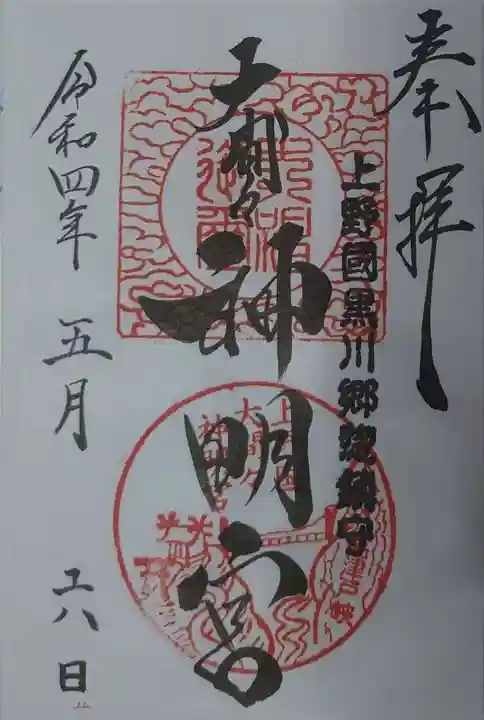 奉拝
上野國黒川郷總鎮守
大間々
神明宮
令和四年 五月 廿八日